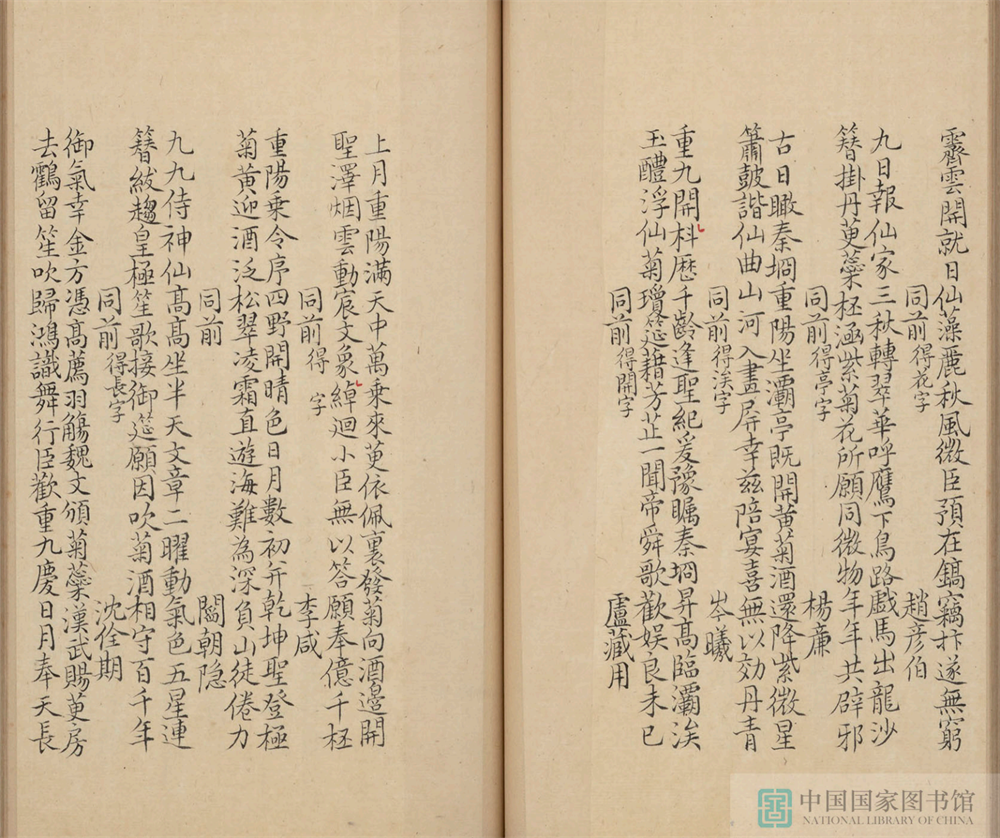 霽雲開就日仙藻麗秋風微臣預在鎬竊抃遂無窮
同前得花字 趙彦伯
九日報仙家三秋轉翠華呼鷹下鳥路戲馬出龍沙
簪掛丹萸蘂杯涵紫菊花所願同微物年年共辟邪
同前得亭字 楊蕭
古日瞰秦坰重陽坐灞亭既開黄菊酒還降紫微星
簫鼓諧仙曲山河入畫屏幸兹陪宴喜無以効丹青
同前得涘字 岑曦
重九開科厯千齡逢聖紀爰豫矚秦坰昇髙臨灞涘
玉醴浮仙菊瓊筵藉芳芷一聞帝舜歌歡娱良未已
同前得開字 盧藏用
上月重陽滿天中萬乘來萸依佩裏發菊向酒邉開
聖澤烟雲動宸文象緯迴小臣無以答願奉億千杯
同前得 字 李咸
重陽乗令序四野開晴色日月數初并乾坤聖登極
菊黄迎酒泛松翠凌霜直遊海難為深負山徒倦力
同前 閻朝隐
九九侍神仙髙髙坐半天文章二曜動氣色五星連
簪紱趨皇極笙歌接御筵願因吹菊酒相守百千年
同前得長字 沈佺期
御氣幸金方憑髙薦羽觴魏文頒菊蘂漢武賜萸房
去鸖留笙吹歸鴻識舞行臣歡重九慶日月奉天長
中国国家图书馆
NATIONAL LIBRARY OF CHINA